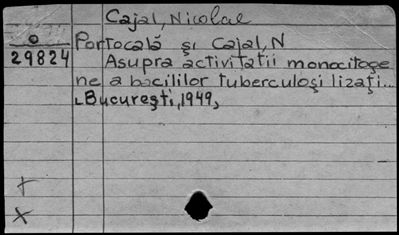 Cajal, Nicolae
O
29824
Portocală și Cajal, N
Asupra activitatii monocitoge
ne a bacililor tuberculoși lizați...
București, 1949,
+
x